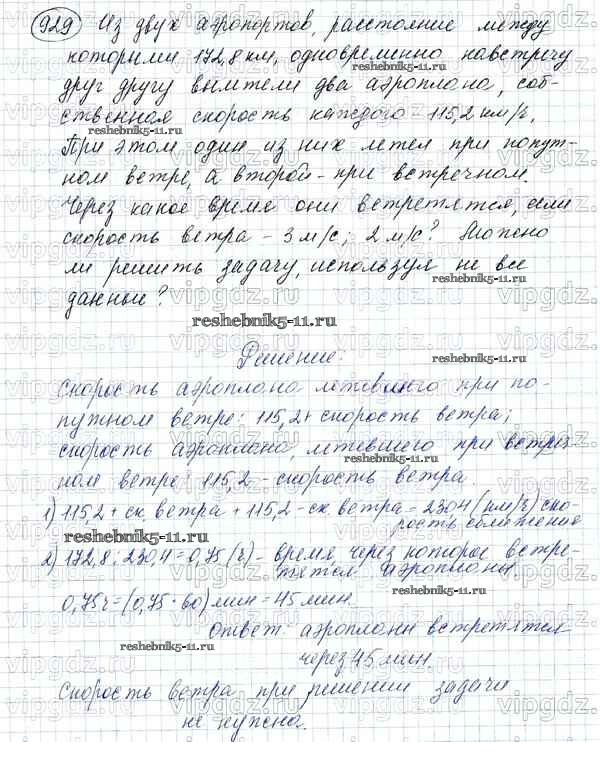 929 Из двух аэропортов, расстояние между
которыми 172,8 км, одновременно навстречу
друг другу вылетели два аэроплана, соб-
ственная скорость каждого 115,2 км/ч.
reshebnik5-11.ru
При этом один из них летел при попут-
ном ветре, а второй - при встречном.
Через какое время они встретятся, если
скорость ветра - 3 м/с; 2 м/с? Можно
ли решить задачу, используя не все
данные?
reshebnik5-11.ru
Решение:
reshebnik5-11.ru
Скорость аэроплана летевшего при по-
путном ветре: 115,2 + скорость ветра;
скорость аэроплана, летевшего при встреч-
reshebnik5-11.ru
ном ветре: 115,2 - скорость ветра.
1) 115,2 + ск ветра + 115,2 - ск ветра = 230,4 (км/ч) ско-
рость сближения
reshebnik5-11.ru
2) 172,8 : 230,4 = 0,75 (ч) - время, через которое встре-
тятся аэропланы
0,75 ч = (0,75 · 60) мин = 45 мин.
reshebnik5-11.ru
Ответ: аэропланы встретятся
reshebnik5-11.ru
через 45 мин.
Скорость ветра при решении задачи
не нужна.
reshebnik5-11.ru
vipgdz.ru